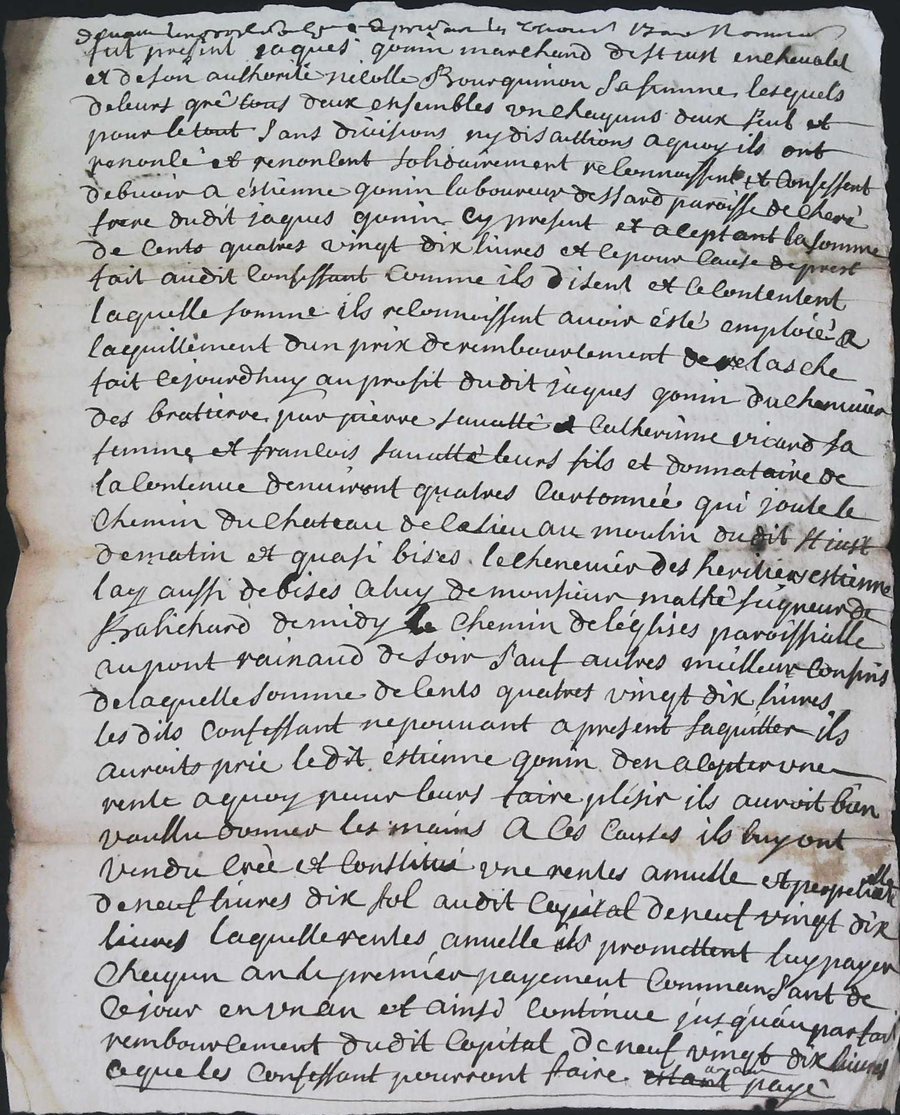 fut present jaques gonin marchand de st just en chevalet
et de son authorité nicolle Bourguinon sa femme lesquels
de leurs gré tous deux ensembles un chayuns deux seul et
pour le tout sans divisions ny disaittions a quoy ils ont
renonlé et renonlent solidairement relonnaissent et Consessent
debuoir a éstienne gonin laboureur dessard paroisse de cheré
frere dudit jaques gonin cy present et aleptant la somme
de Cents quatres vingt dix liures et le pour Cause de prest
fait audit Consessant Comme ils disent et le Contentent
laquelle somme ils relonnoissent avoir ésté emploié a
laquittement dun prix de rembourlement de relasche
fait lejourdhuy au profit dudit jaques gonin du chemuier
des bratierre par pierre sauattê et Catherinne vicard sa
femme et francois sauatté leurs fils et donnataire de
la Contenue denuiront quatres Cartonnée qui joute le
Chemin du Chateau de lieu au moulin dudit st just
de matin et quasi bises le chenevier des heritiers estienne
lay aussi de bises a luy de monsieur mathé seigneur de
Balichard de midy le Chemin de l'églises paroissialle
au pont rainaud de soir sauf autres meilleur Confins
de laquelle somme de Cents quatres vingt dix liures
les dits Confessant ne pouuant a present saquitter ils
auroits prié le dit éstienne gonin den alepter une
rente a quoy pour leurs faire plésir ils auroit bien
voullu donner les mains A Ces Causes ils luy ont
vendu Créé et Constitué une rentes annuelle et perpetuelle
de neuf liures dix sol audit Capital de neuf vingt dix
liures laquelle rentes annuelle ils promettent luy payer
Chayun an le premier payement Commansant de
Ce jour en un an et ainsi Continue jusquau parfai
rembourcement dudit Capital De neuf vingt dix liures
Ce que les Confessant pourront faire estant payé